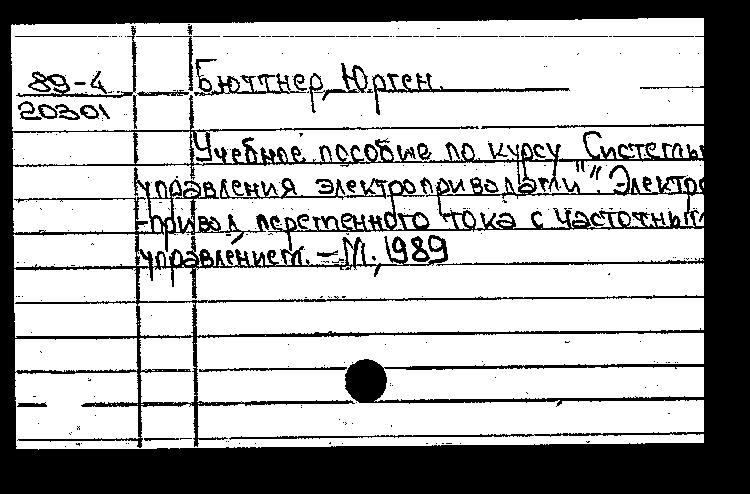 89-4
20301
Бюттнер, Юрген.
Учебное пособие по курсу Системы
управления электроприводами". Электро
-привод переменного тока с частотным
управлением. – М., 1989